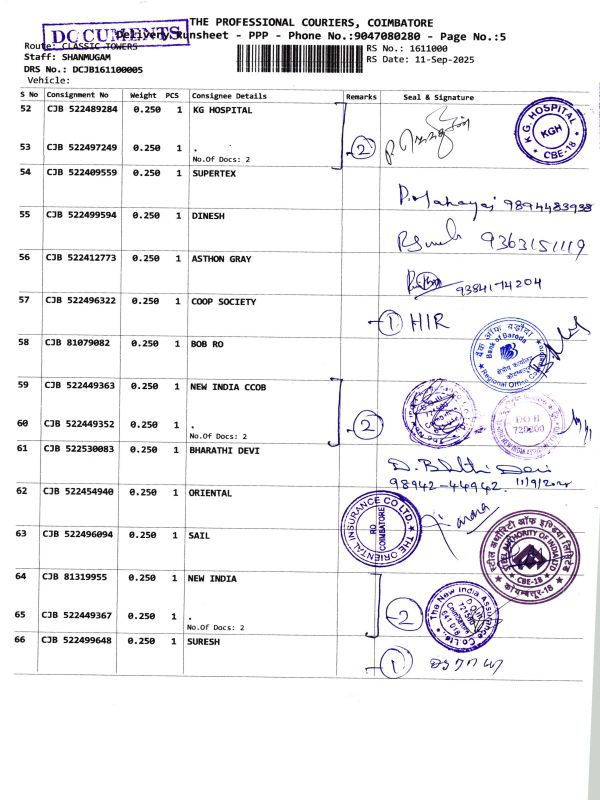 THE PROFESSIONAL COURIERS, COIMBATORE
DOCUMENTS
Delivery Runsheet - PPP - Phone No.:9047080280 - Page No.:5
Route: CLASSIC TOWERS
RS No.: 1611000
Staff: SHANMUGAM
RS Date: 11-Sep-2025
DRS No.: DCJB161100005
Vehicle:
S No Consignment No Weight PCS Consignee Details Remarks Seal & Signature
52 CJB 522489284 0.250 1 KG HOSPITAL
K.G. HOSPITAL KGH CBE-18
53 CJB 522497249 0.250 1 .
No.Of Docs: 2
2
54 CJB 522409559 0.250 1 SUPERTEX
9894483938
55 CJB 522499594 0.250 1 DINESH
9363151119
56 CJB 522412773 0.250 1 ASTHON GRAY
9384174204
57 CJB 522496322 0.250 1 COOP SOCIETY
1 HIR
58 CJB 81079082 0.250 1 BOB RO
बैंक ऑफ बड़ौदा
Bank of Baroda
Regional Office
59 CJB 522449363 0.250 1 NEW INDIA CCOB
60 CJB 522449352 0.250 1 .
No.Of Docs: 2
2
D O II
720800
61 CJB 522530083 0.250 1 BHARATHI DEVI
98942-44942
62 CJB 522454940 0.250 1 ORIENTAL
THE ORIENTAL INSURANCE CO LTD. RO COIMBATORE
63 CJB 522496094 0.250 1 SAIL
स्टील अथॉरिटी ऑफ इण्डिया लिमिटेड
STEEL AUTHORITY OF INDIA LTD
CBE-18
कोयम्बत्तूर-18
64 CJB 81319955 0.250 1 NEW INDIA
65 CJB 522449367 0.250 1 .
No.Of Docs: 2
2
The New India Assurance Co Ltd.
66 CJB 522499648 0.250 1 SURESH
1